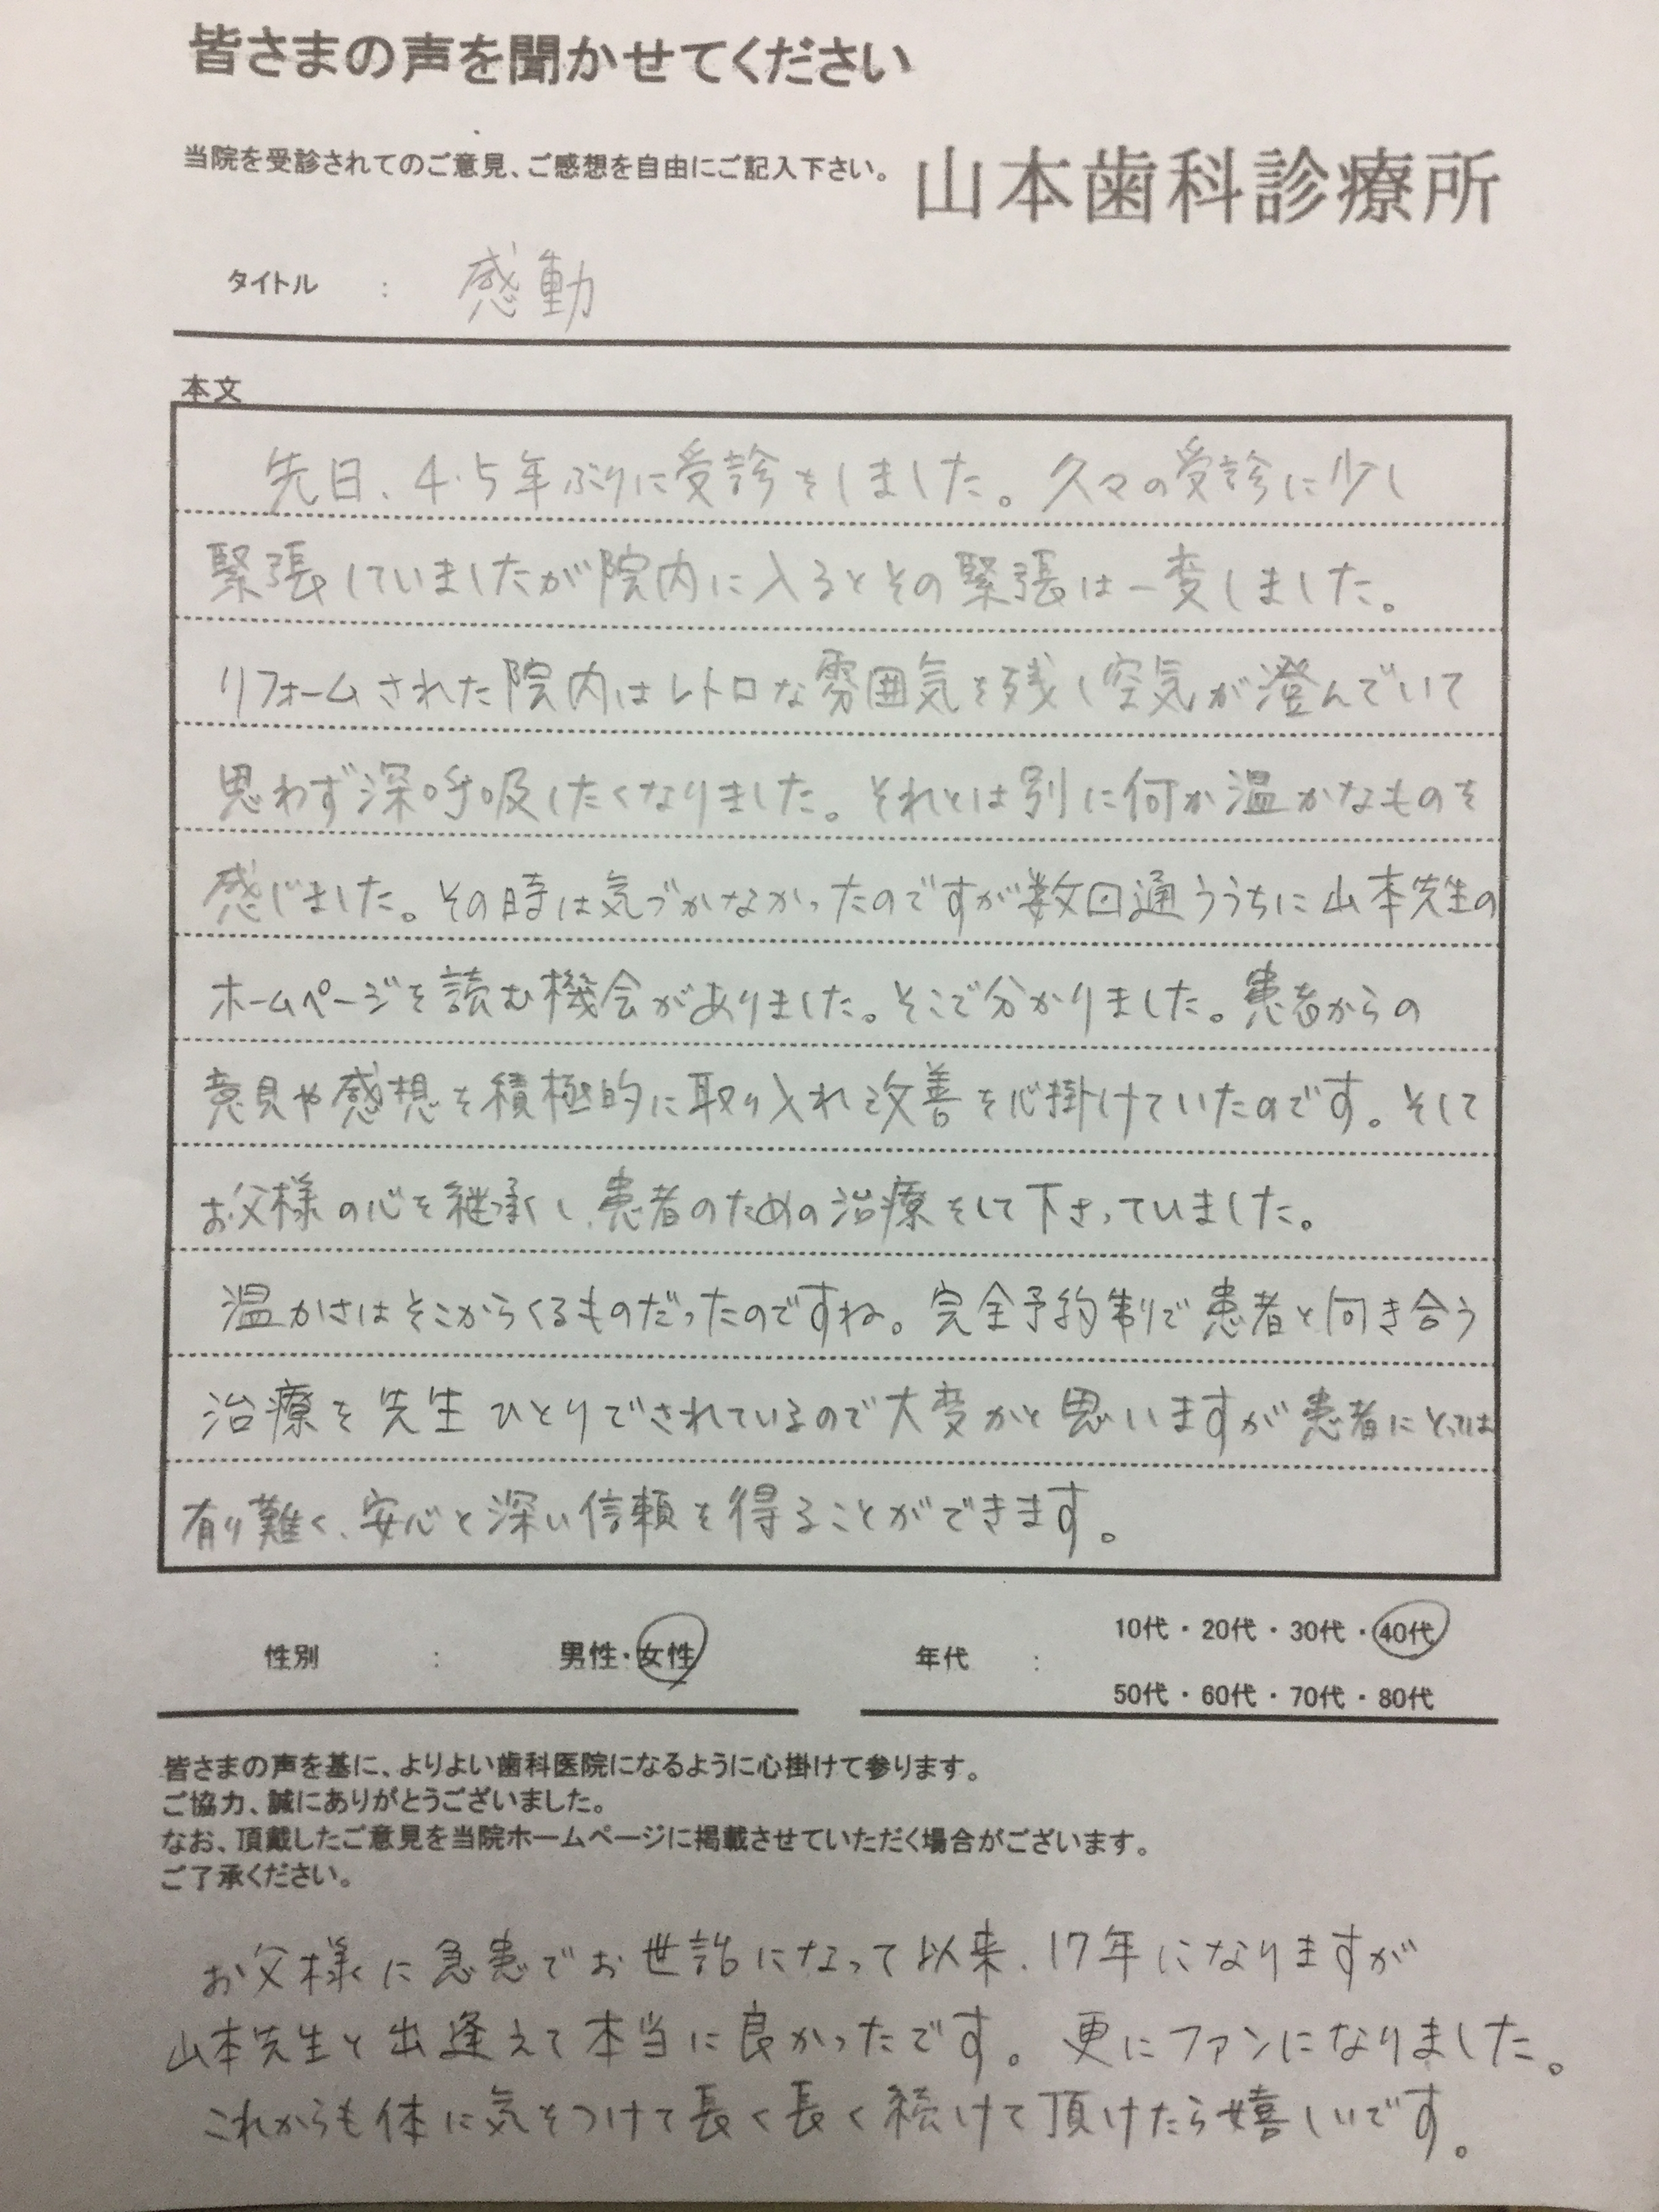 皆さまの声を聞かせてください
当院を受診されてのご意見、ご感想を自由にご記入下さい。 山本歯科診療所
タイトル : 感動
本文
先日、4・5年ぶりに受診をしました。久々の受診に少し
緊張していましたが院内に入るとその緊張は一変しました。
リフォームされた院内はレトロな雰囲気を残し空気が澄んでいて
思わず深呼吸したくなりました。それとは別に何か温かなものを
感じました。その時は気づかなかったのですが数回通ううちに山本先生の
ホームページを読む機会がありました。そこで分かりました。患者からの
意見や感想を積極的に取り入れ改善を心掛けていたのです。そして
お父様の心を継承し、患者のための治療をして下さっていました。
温かさはそこからくるものだったのですね。完全予約制で患者と向き合う
治療を先生ひとりでされているので大変かと思いますが患者にとっては
有り難く、安心と深い信頼を得ることができます。
性別 : 男性・女性 年代 : 10代・20代・30代・40代
50代・60代・70代・80代
皆さまの声を基に、よりよい歯科医院になるように心掛けて参ります。
ご協力、誠にありがとうございました。
なお、頂戴したご意見を当院ホームページに掲載させていただく場合がございます。
ご了承ください。
お父様に急患でお世話になって以来、17年になりますが
山本先生と出逢えて本当に良かったです。更にファンになりました。
これからも体に気をつけて長く長く続けて頂けたら嬉しいです。